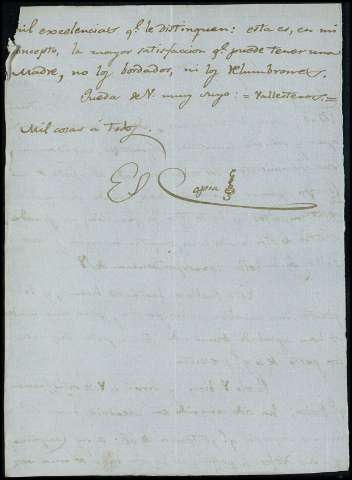 mil excelencias q.e le distinguen: esta es, en mi
concepto, la mayor satisfaccion q.e puede tener una
Madre, no los bordados, ni los relumbrones.
Queda de V. muy suyo: = Ballesteros. =
Mil cosas á todos.
Es Copia